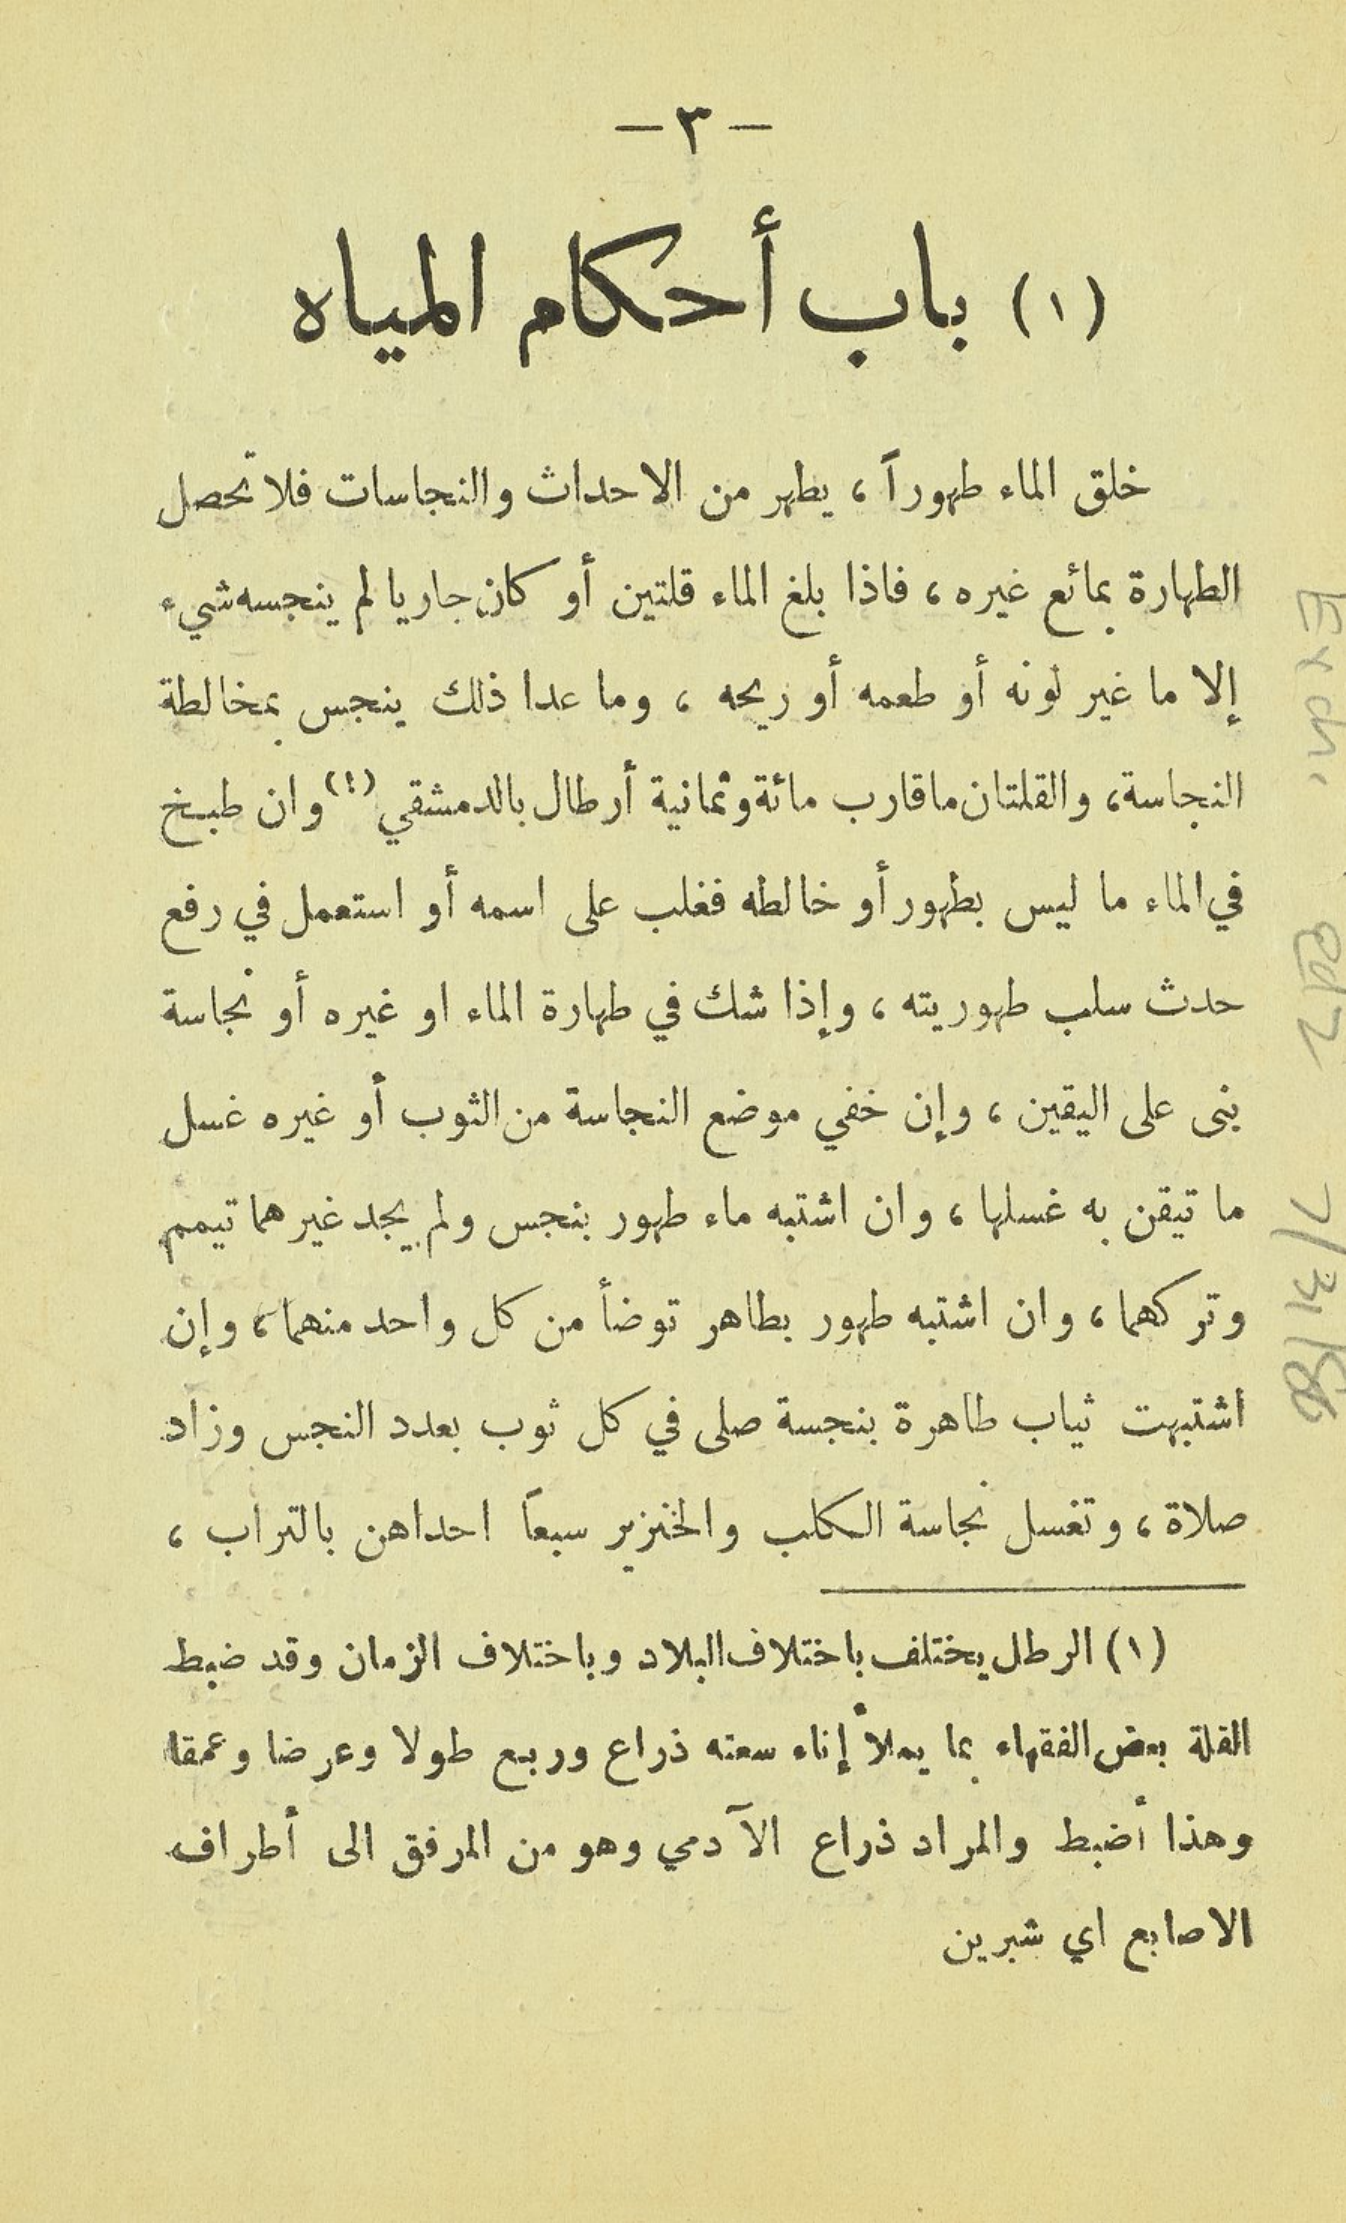 — ٣ —
(١) باب أحكام المياه
خلق الماء طهوراً ، يطهر من الاحداث والنجاسات فلا تحصل
الطهارة بمائع غيره ، فاذا بلغ الماء قلتين أو كان جاريا لم ينجسه شيء
إلا ما غير لونه أو طعمه أو ريحه ، وما عدا ذلك ينجس بمخالطة
النجاسة، والقلتان ماقارب مائة وثمانية أرطال بالدمشقي (١) وان طبخ
في الماء ما ليس بطهور أو خالطه فغلب على اسمه أو استعمل في رفع
حدث سلب طهوريته ، وإذا شك في طهارة الماء او غيره أو نجاسة
بنى على اليقين ، وإن خفي موضع النجاسة من الثوب أو غيره غسل
ما تيقن به غسلها ، وان اشتبه ماء طهور بنجس ولم يجد غيرهما تيمم
وتركهما ، وان اشتبه طهور بطاهر توضأ من كل واحد منهما ، وإن
اشتبهت ثياب طاهرة بنجسة صلى في كل ثوب بعدد النجس وزاد
صلاة ، وتغسل نجاسة الكلب والخنزير سبعاً احداهن بالتراب ،
(١) الرطل يختلف باختلاف البلاد وباختلاف الزمان وقد ضبط
القلة بعض الفقهاء بما يملأ إناء سعته ذراع وربع طولا وعرضا وعمقا
وهذا أضبط والمراد ذراع الآدمي وهو من المرفق الى أطراف
الاصابع اي شبرين
Exch.
ed2
7/31/86